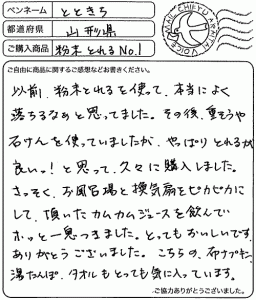 ペンネーム とときち
都道府県 山形県
ご購入商品 粉末とれるNo.1
ご自由に商品に関するご感想などお書きください。
以前、粉末とれるを使って、本当によく
落ちるなぁと思ってました。その後、重そうや
石けんを使っていましたが、やっぱりとれるが
良いっ!と思って、久々に購入しました。
さっそく、お風呂場と換気扇をピカピカに
して、頂いたカムカムジュースを飲んで
ホッと一息つきました。とってもおいしいです。
ありがとうございました。こちらの布ナプキン、
湯たんぽ、タオルもとても気に入っています。
ご協力ありがとうございました。